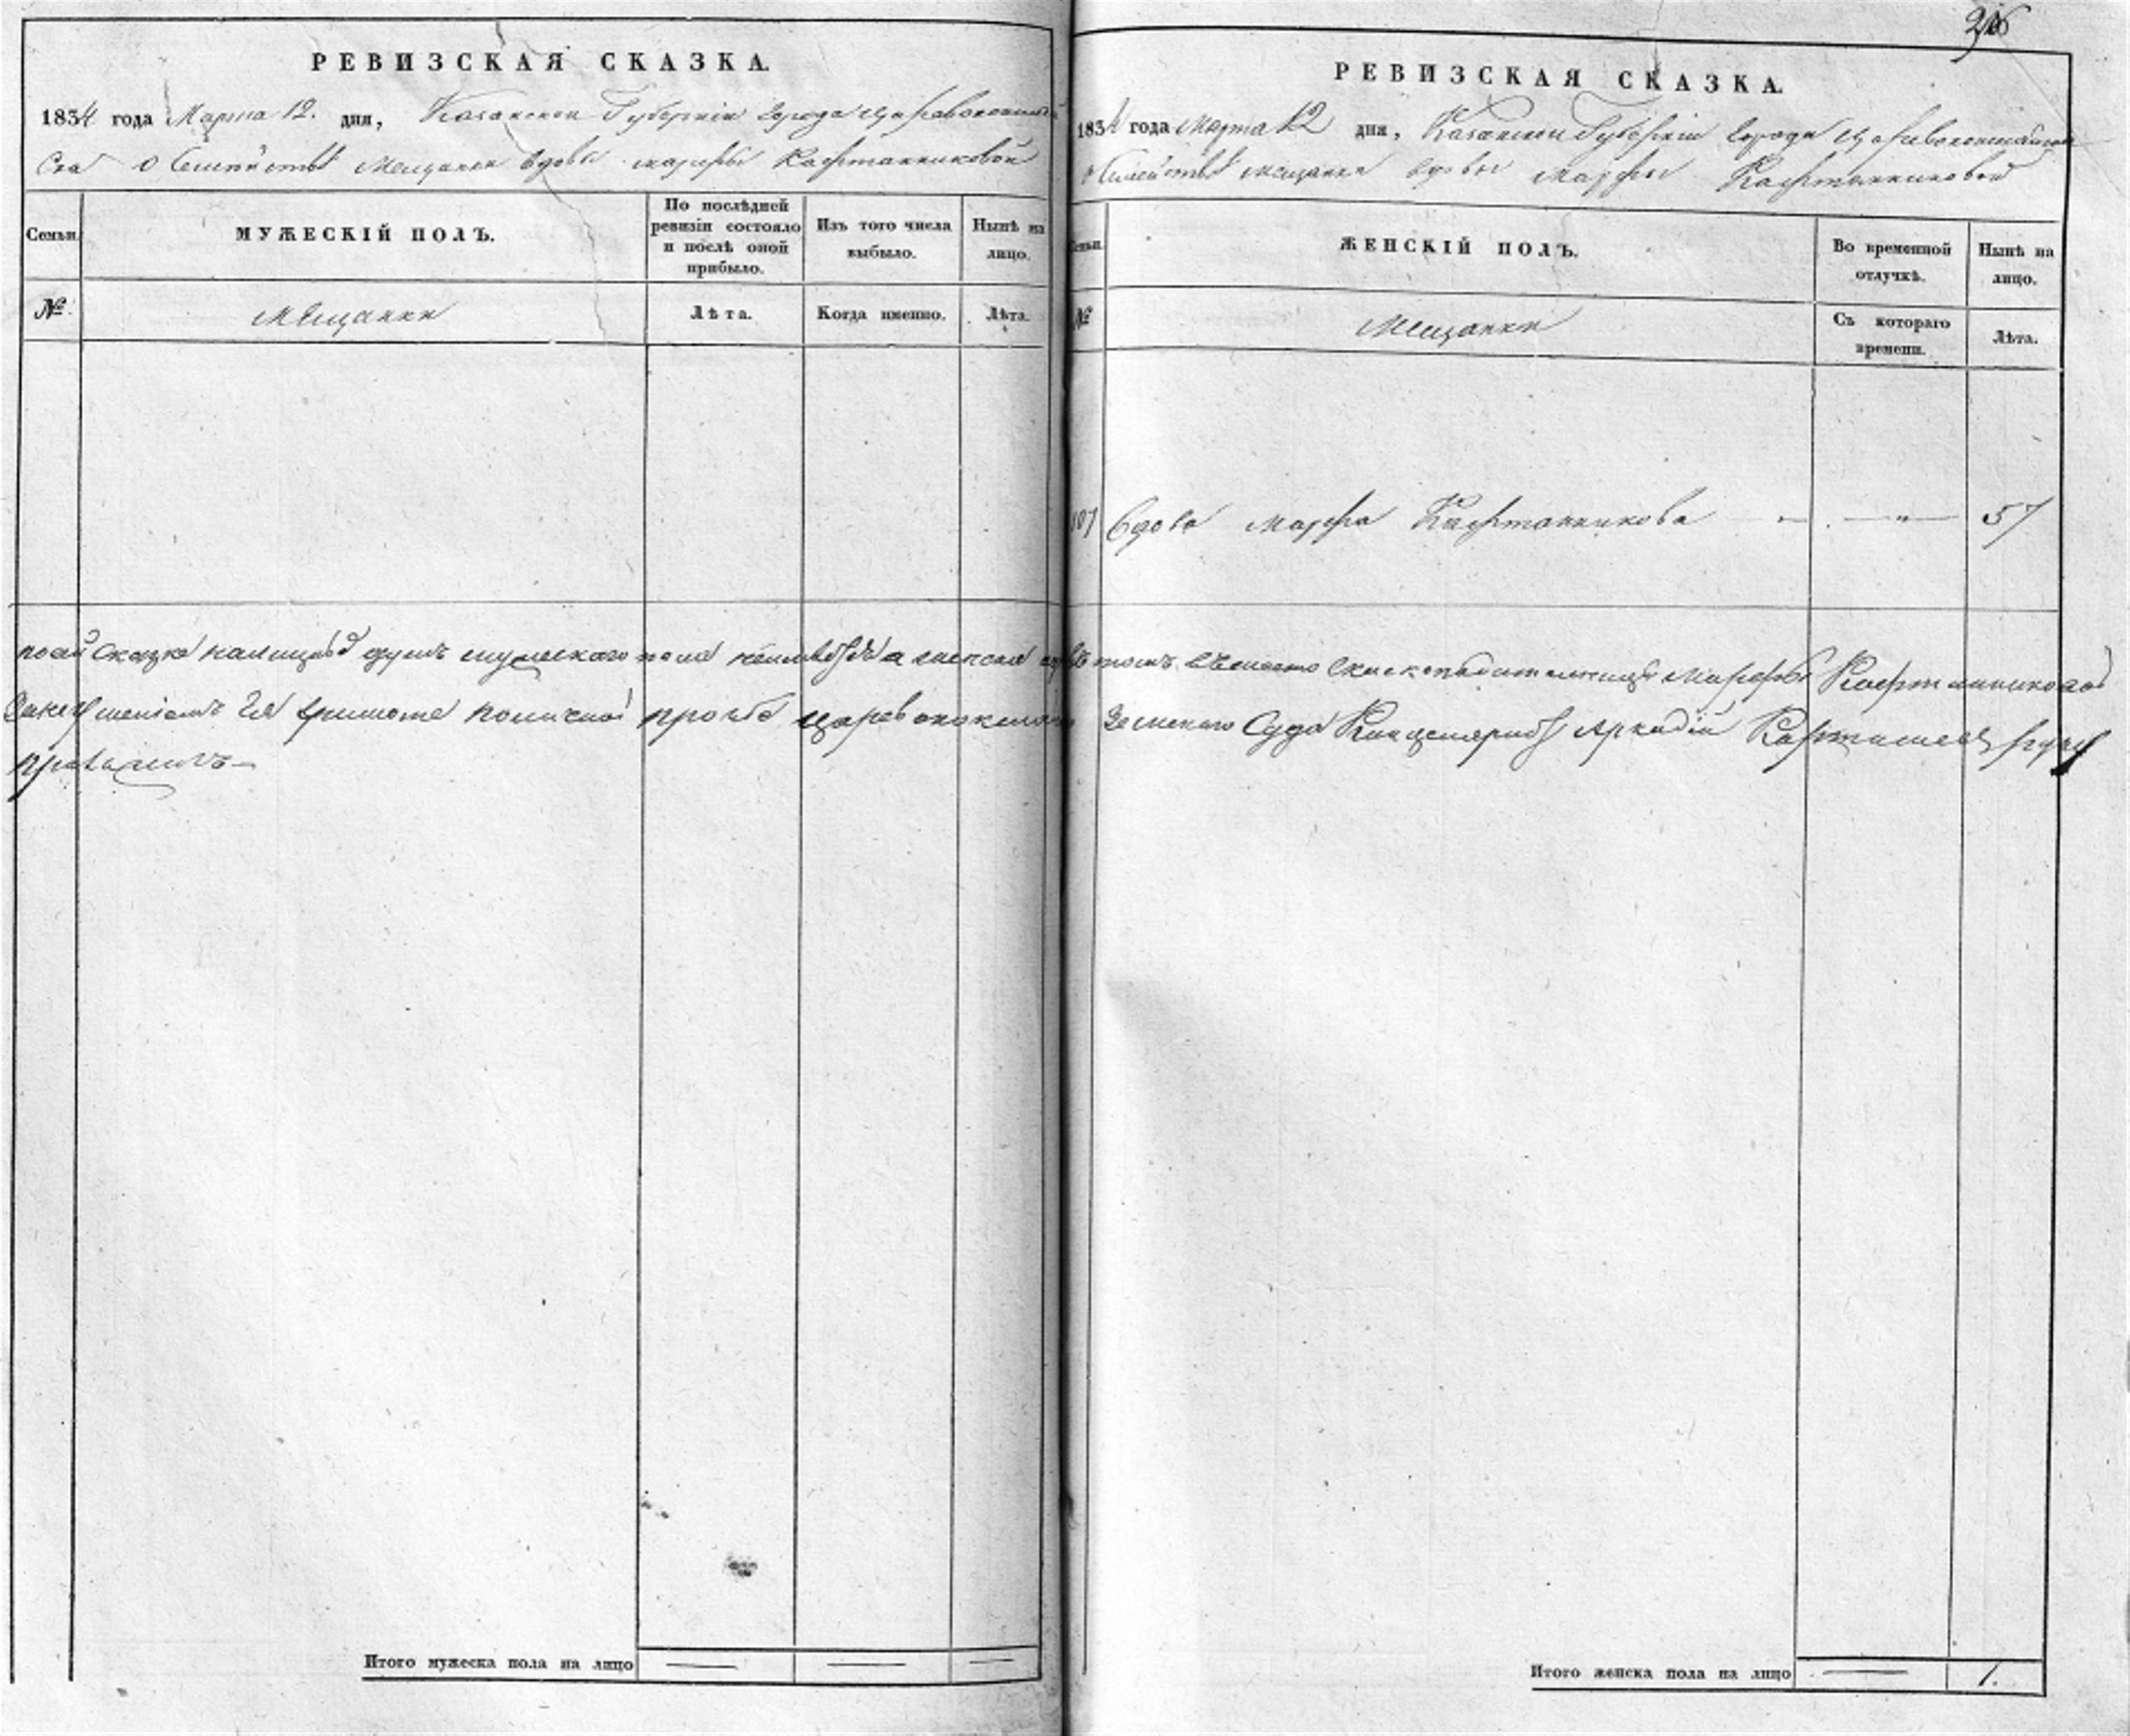 РЕВИЗСКАЯ СКАЗКА.
1834 года Марта 12. дня, Казанской Губернiи города Царевококшай
ска о семействѣ мещанки вдовы марфы Кафтанниковой
Семьи.
МУЖЕСКIЙ ПОЛЪ.
По послѣдней ревизiи состояло и послѣ оной прибыло.
Изъ того числа выбыло.
Нынѣ на лицо.
№
мѣщанки
Лѣта.
Когда именно.
Лѣта.
Итого мужеска пола на лицо
216
РЕВИЗСКАЯ СКАЗКА.
1834 года марта 12 дня, Казанской Губернiи города Царевококшайска
о семействѣ мещанки вдовы Марфы Кафтанниковой
Семьи.
ЖЕНСКIЙ ПОЛЪ.
Во временной отлучкѣ.
Нынѣ на лицо.
№
Мещанки
Съ котораго времени.
Лѣта.
107 Вдова марфа Кафтанникова — " — 57
посей сказке налицо душъ мужескаго пола а женска въ томъ вместо Марфы Кафтанниковой
грамоте поличной прозбе царевококшайского Земского Суда Канцеляристъ Аркадiй руку
приложилъ
Итого женска пола на лицо — 1.